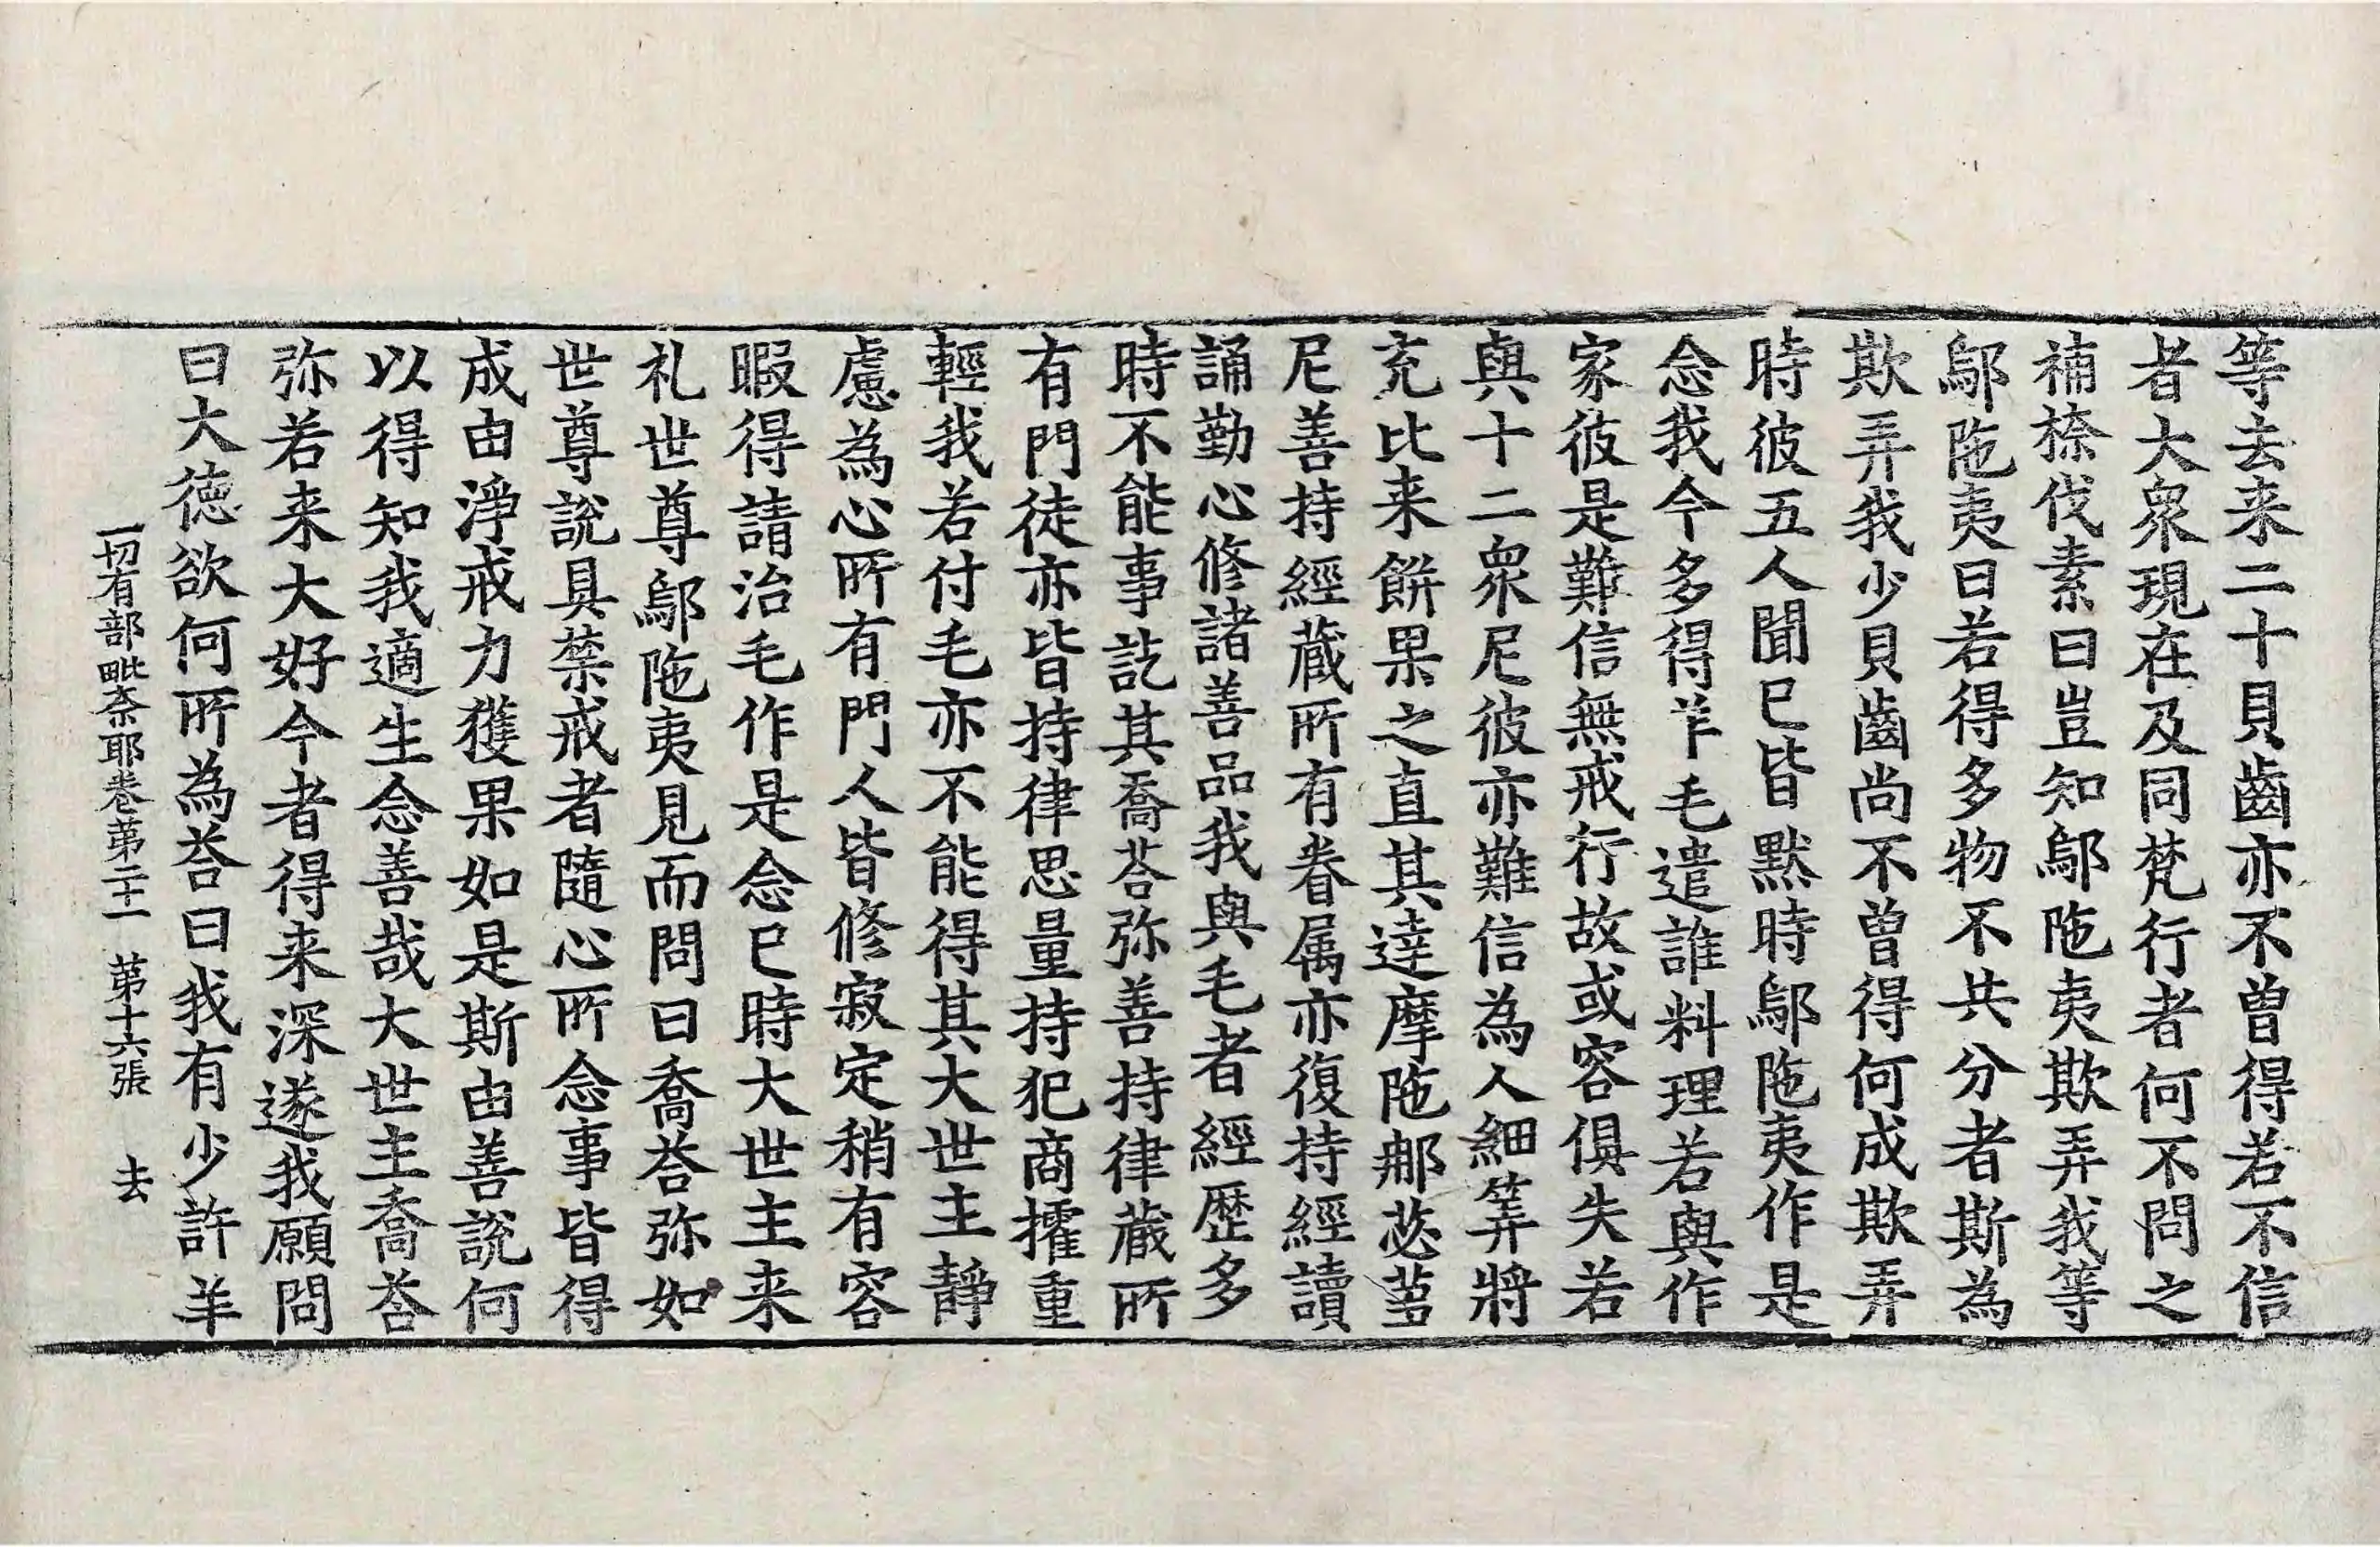 等去来二十貝齒亦不曽得若不信
者大衆現在及同梵行者何不問之
補捺伐素曰豈知鄔陁夷欺弄我等
鄔陁夷曰若得多物不共分者斯為
欺弄我少貝齒尚不曽得何成欺弄
時彼五人聞已皆默時鄔陁夷作是
念我今多得羊毛遣誰料理若與作
家彼是難信無戒行故或容俱失若
與十二衆尼彼亦難信為人細筭將
充比来餅果之直其達摩陁那苾蒭
尼善持經蔵所有眷属亦復持經讀
誦勤心修諸善品我與毛者經歴多
時不能事訖其喬荅弥善持律蔵所
有門徒亦皆持律思量持犯商搉重
輕我若付毛亦不能得其大世主靜
慮為心所有門人皆修寂定稍有容
暇得請治毛作是念已時大世主来
礼世尊鄔陁夷見而問曰喬荅弥如
世尊說具禁戒者隨心所念事皆得
成由淨戒力獲果如是斯由善說何
以得知我適生念善哉大世主喬荅
弥若来大好今者得来深遂我願問
曰大徳欲何所為荅曰我有少許羊
一切有部毗奈耶卷第二十一 第十六張 去